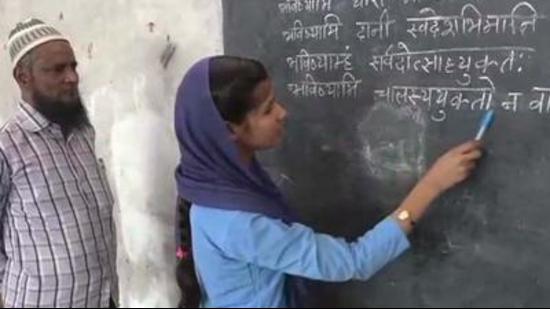 भविष्यामि धीरो
भविष्यामि दानी स्वदेशाभिमानी
भविष्याम्यहं सर्वदोत्साहयुक्तः
भविष्यामि चालस्ययुक्तो न वा